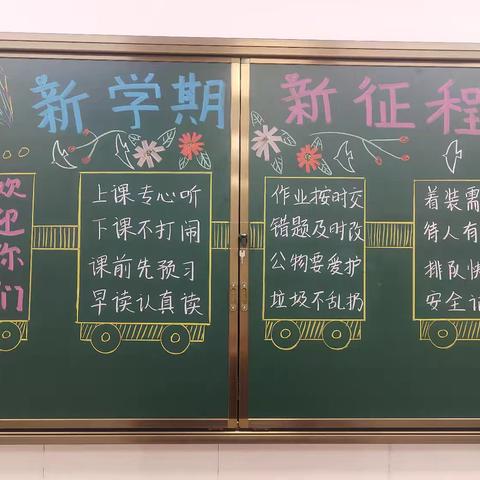 新学期 新征程
欢迎你们
上课专心听
下课不打闹
课前先预习
早读认真读
作业按时交
错题及时改
公物要爱护
垃圾不乱扔
着装需
待人有
排队快
安全